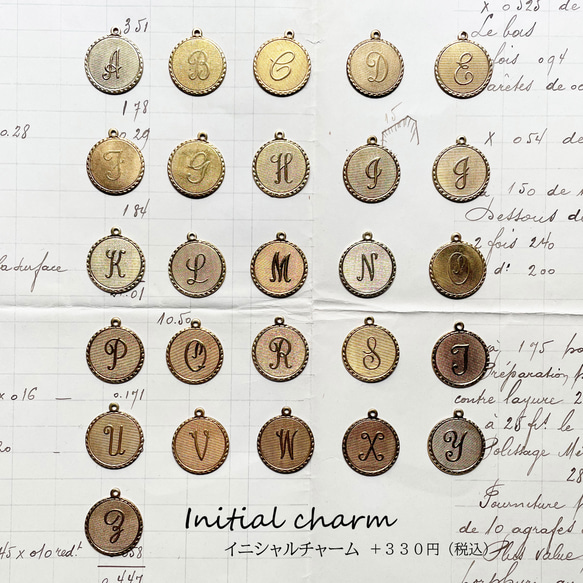 351
x 0.525 de
Le bas
fois 0.94
A B C D E
arêtes de
178
0.28
0.29
15
x 054 de
F G H I J
184
150 de
Dessous d
2 fois 240
d° 200
K L M N O
la surface
01
10.50
à 175 po
P Q R S T
Préparation
x 016 — 0.171
contre layure
à 25 ft. le
U V W X Y
Polissage Mé
28
20
Fourniture
de 10 agrafes
Z
Initial charm
45 x 010 redt.
イニシャルチャーム +330円(税込)
Plus value
0.447